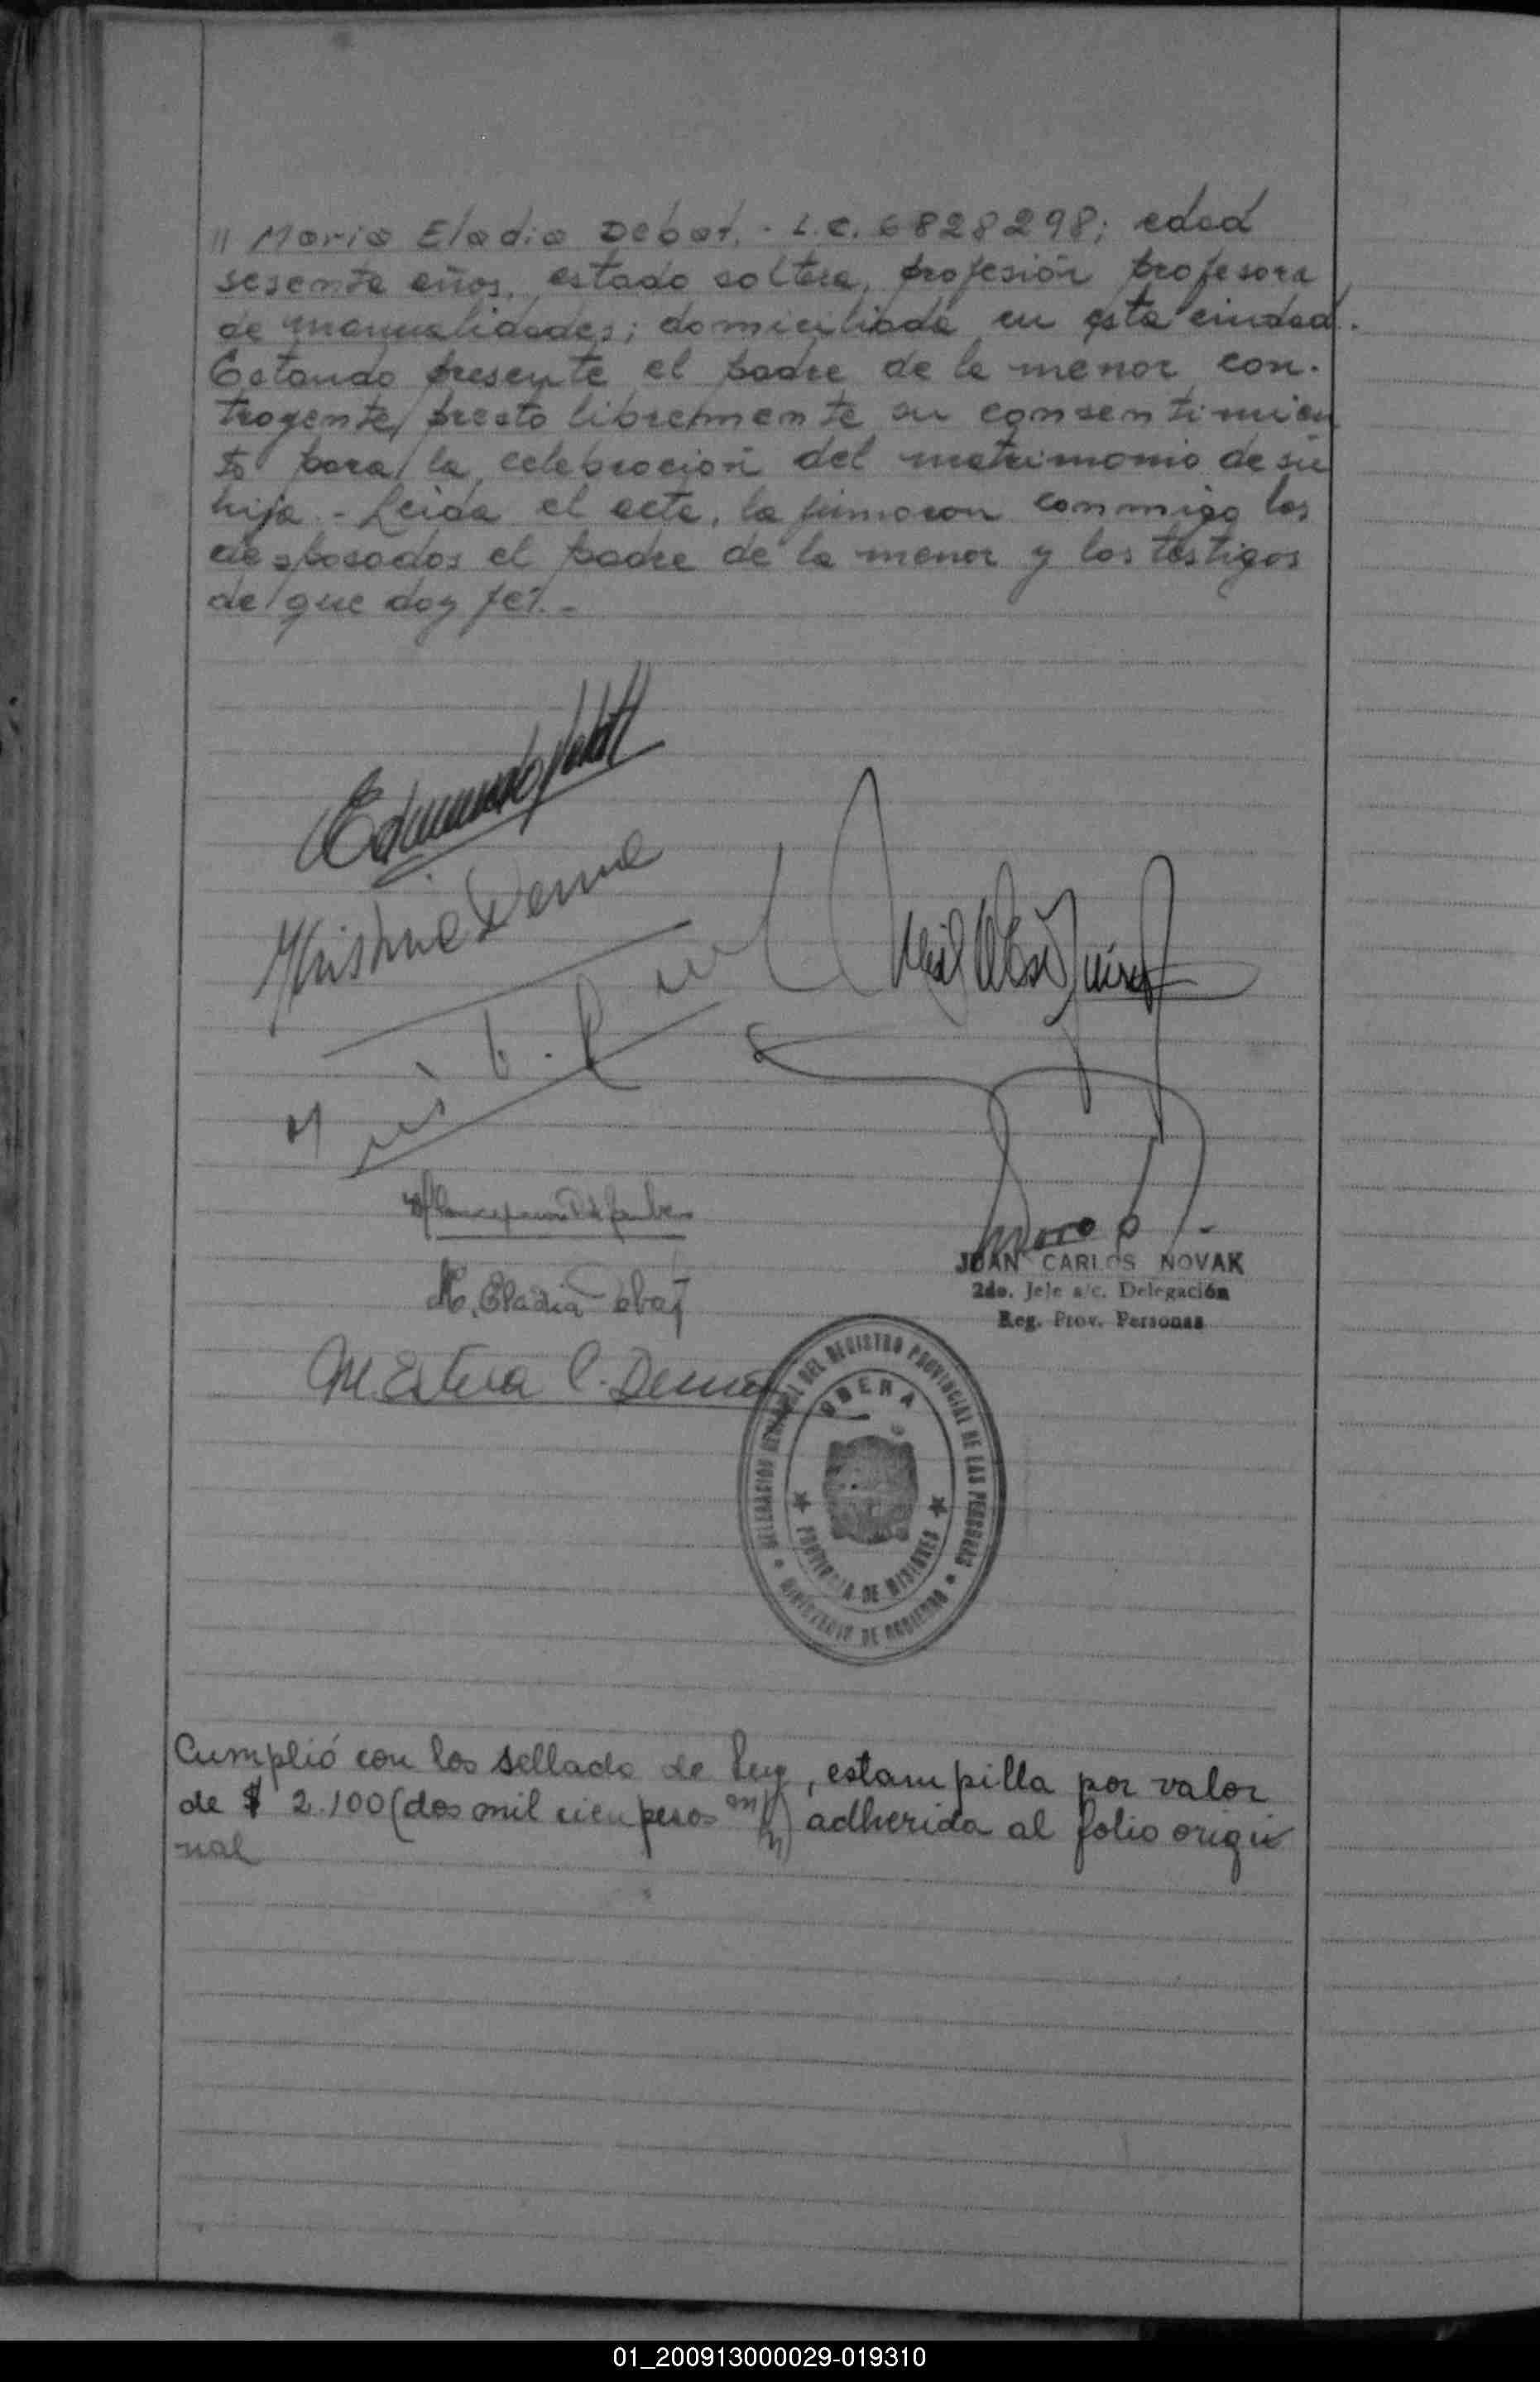 " Maria Eladia Debat. - L.C. 6828298; edad
sesenta años, estado soltera, profesión profesora
de manualidades; domiciliada en esta ciudad.
Estando presente el padre de la menor con-
trayente, presto libremente su consentimien
to para la celebracion del matrimonio de su
hija. - Leida el acta, la firmaron conmigo los
desposados el padre de la menor y los testigos
de que doy fe. -
Edmundo
M. Eladia Debat
JUAN CARLOS NOVAK
2do. Jefe a/c. Delegación
Reg. Prov. Personas
DELEGACION GENERAL DEL REGISTRO PROVINCIAL DE LAS PERSONAS
OBERA
PROVINCIA DE MISIONES
MINISTERIO DE GOBIERNO
Cumplió con los sellado de Ley, estampilla por valor
de $ 2.100 (dos mil cien pesos m/n) adherida al folio origi
nal
01_200913000029-019310